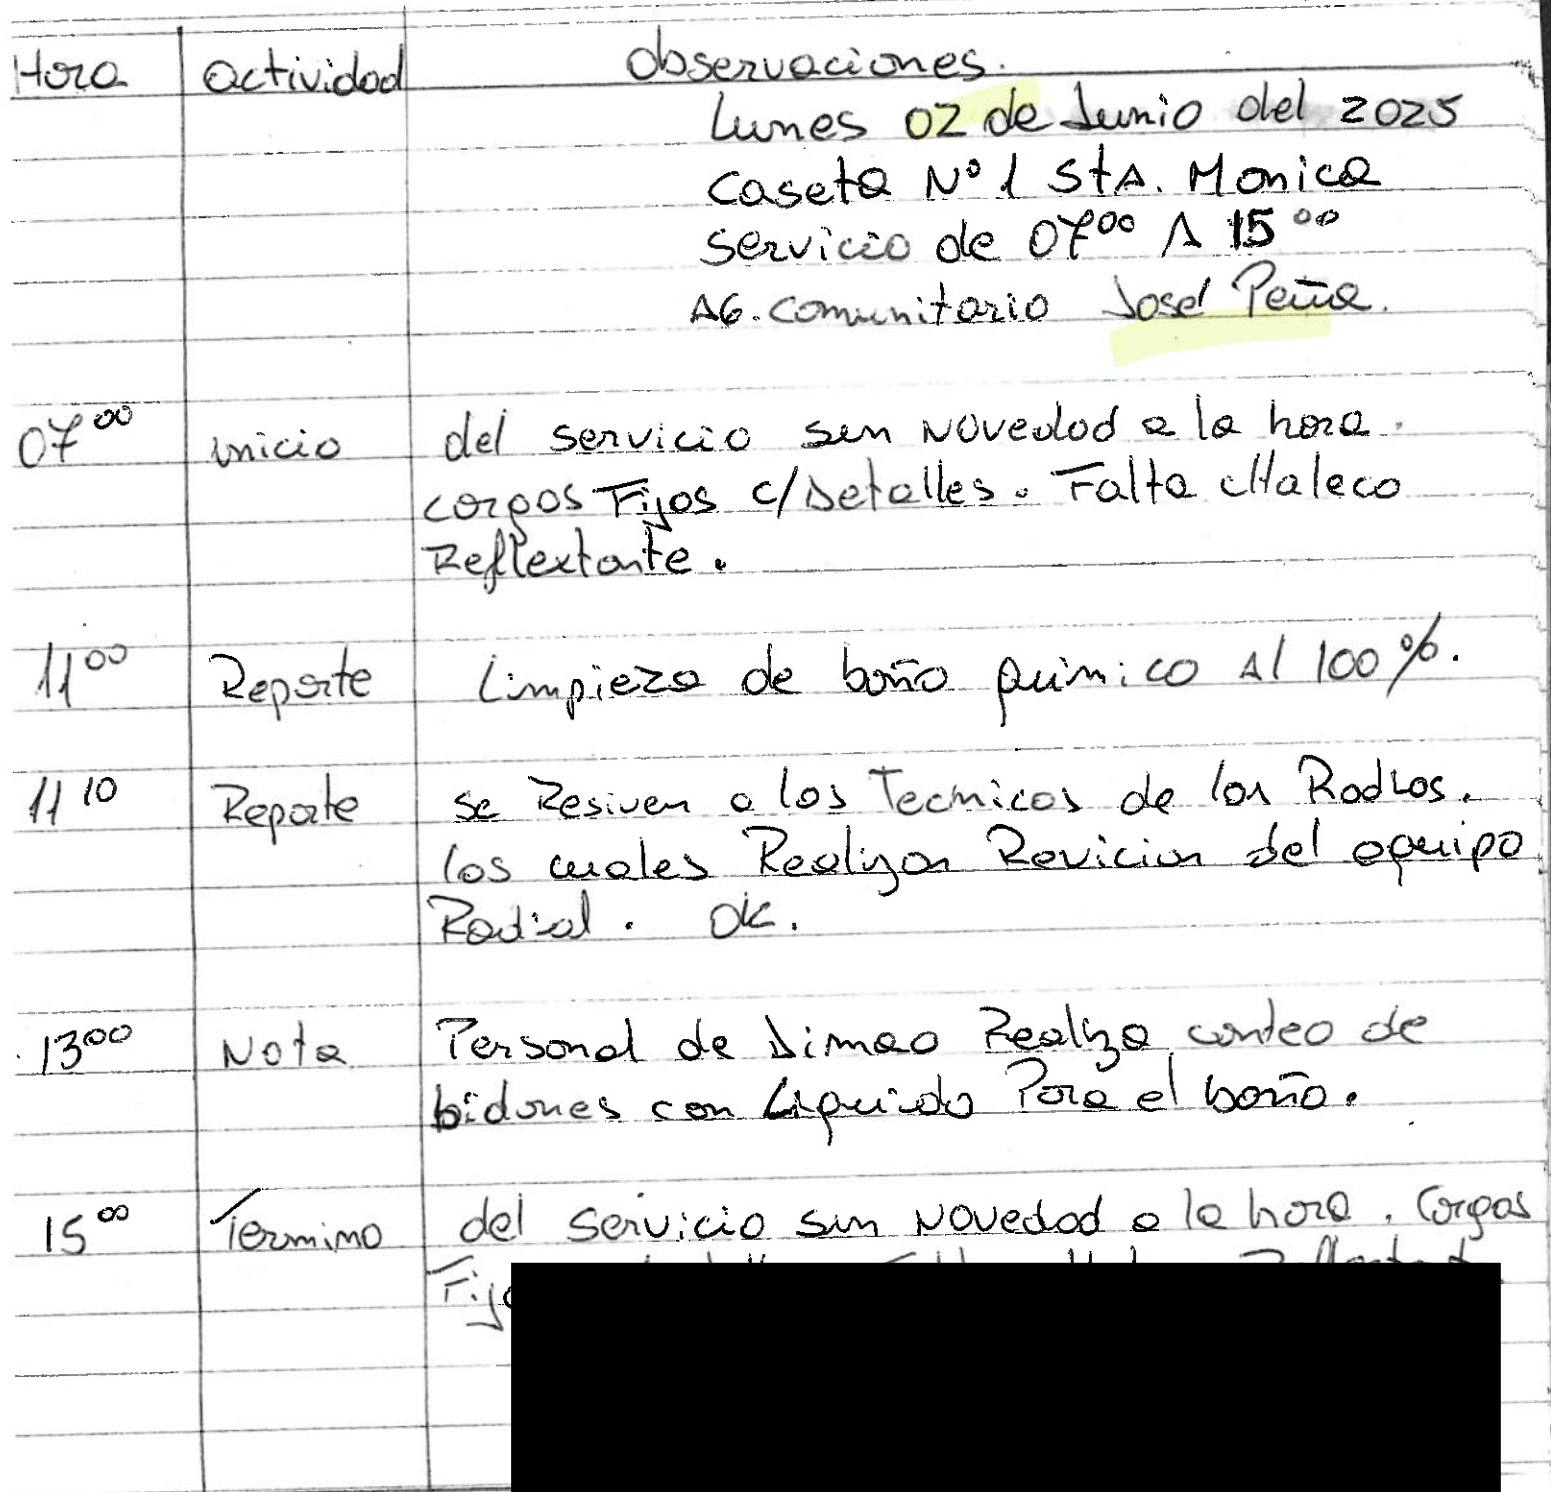 Hora actividad observaciones.
Lunes 02 de Junio del 2025
Caseta N° 1 StA. Monica
Servicio de 07⁰⁰ A 15⁰⁰
AG. Comunitario José Peña.
07⁰⁰ inicio del servicio sin Novedad a la hora.
cargos Fijos c/Detalles. Falta chaleco
Reflextante.
11⁰⁰ Reporte Limpieza de baño Quimico Al 100%.
11¹⁰ Reporte se Resiven a los Tecnicos de los Radios.
los cuales Realizan Revicion del equipo
Radial. OK.
13⁰⁰ Nota Personal de Dimao Realiza conteo de
bidones con Liquido Para el baño.
15⁰⁰ Termino del servicio sin Novedad a la hora. Cargos